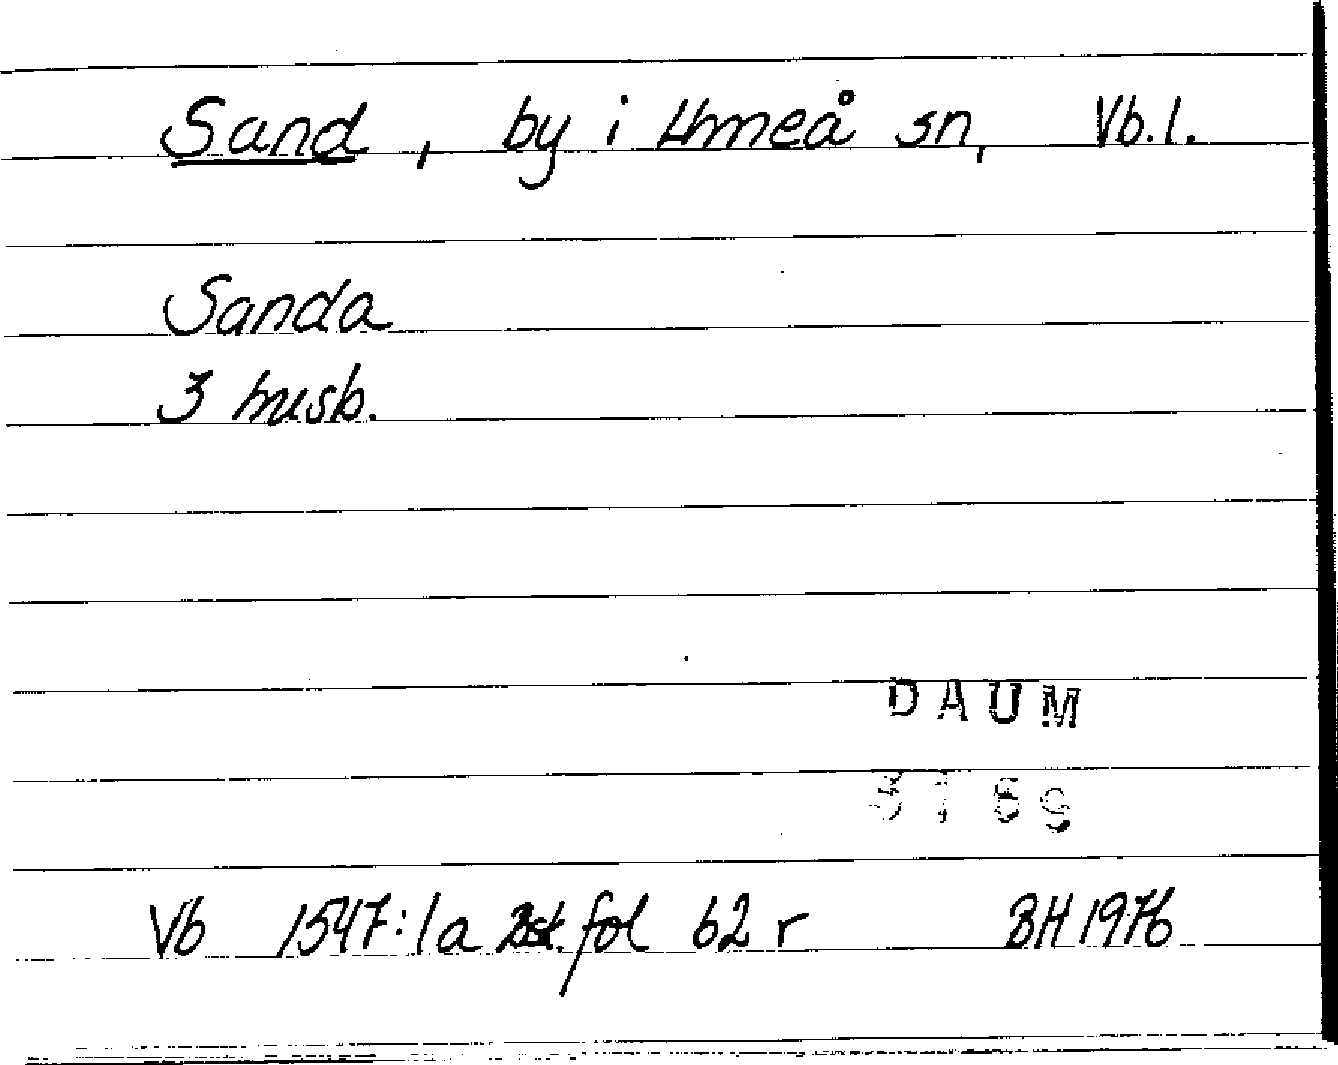 Sand, by i Umeå sn, Vb.l.
Sanda
3 husb.
DAUM
Vb 1547:1a fol 62 r BH 1976